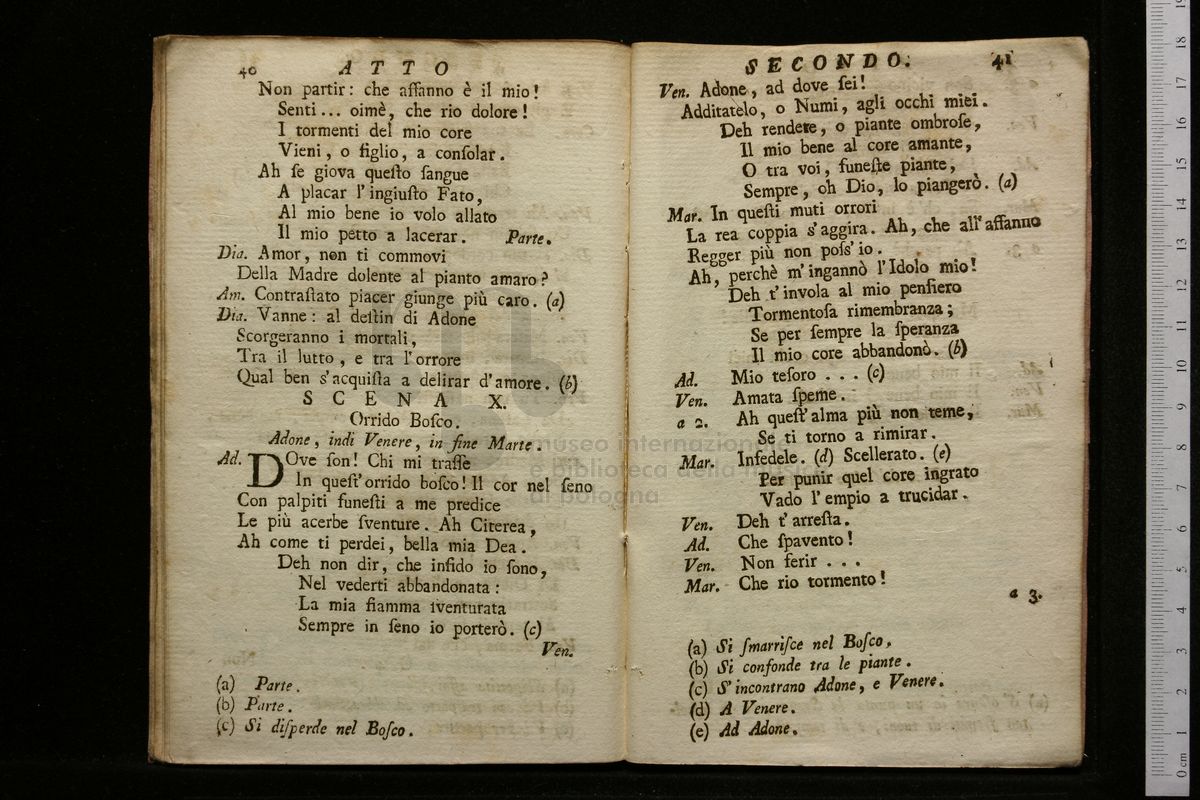 40 ATTO
Non partir: che aſſanno è il mio!
Senti... oimè, che rio dolore!
I tormenti del mio core
Vieni, o figlio, a conſolar.
Ah ſe giova queſto ſangue
A placar l'ingiuſto Fato,
Al mio bene io volo allato
Il mio petto a lacerar. Parte.
Dia. Amor, non ti commovi
Della Madre dolente al pianto amaro?
Am. Contraſtato piacer giunge più caro. (a)
Dia. Vanne: al deſtin di Adone
Scorgeranno i mortali,
Tra il lutto, e tra l'orrore
Qual ben s'acquiſta a delirar d'amore. (b)
SCENA X.
Orrido Boſco.
Adone, indi Venere, in fine Marte.
Ad. DOve ſon! Chi mi traſſe
In queſt'orrido boſco! Il cor nel ſeno
Con palpiti funeſti a me predice
Le più acerbe ſventure. Ah Citerea,
Ah come ti perdei, bella mia Dea.
Deh non dir, che infido io ſono,
Nel vederti abbandonata:
La mia fiamma ſventurata
Sempre in ſeno io porterò. (c)
Ven.
(a) Parte.
(b) Parte.
(c) Si diſperde nel Boſco.
SECONDO. 41
Ven. Adone, ad dove ſei!
Additatelo, o Numi, agli occhi miei.
Deh rendete, o piante ombroſe,
Il mio bene al core amante,
O tra voi, funeſte piante,
Sempre, oh Dio, lo piangerò. (a)
Mar. In queſti muti orrori
La rea coppia s'aggira. Ah, che all'affanno
Regger più non poſs'io.
Ah, perchè m'ingannò l'Idolo mio!
Deh t'invola al mio penſiero
Tormentoſa rimembranza;
Se per ſempre la ſperanza
Il mio core abbandonò. (b)
Ad. Mio teſoro... (c)
Ven. Amata ſpeme.
a 2. Ah queſt'alma più non teme,
Se ti torno a rimirar.
Mar. Infedele. (d) Scellerato. (e)
Per punir quel core ingrato
Vado l'empio a trucidar.
Ven. Deh t'arreſta.
Ad. Che ſpavento!
Ven. Non ferir...
Mar. Che rio tormento!
a 3.
(a) Si ſmarriſce nel Boſco.
(b) Si confonde tra le piante.
(c) S'incontrano Adone, e Venere.
(d) A Venere.
(e) Ad Adone.
museo internazionale
e biblioteca della musica
di bologna
0 cm 1 2 3 4 5 6 7 8 9 10 11 12 13 14 15 16 17 18 19